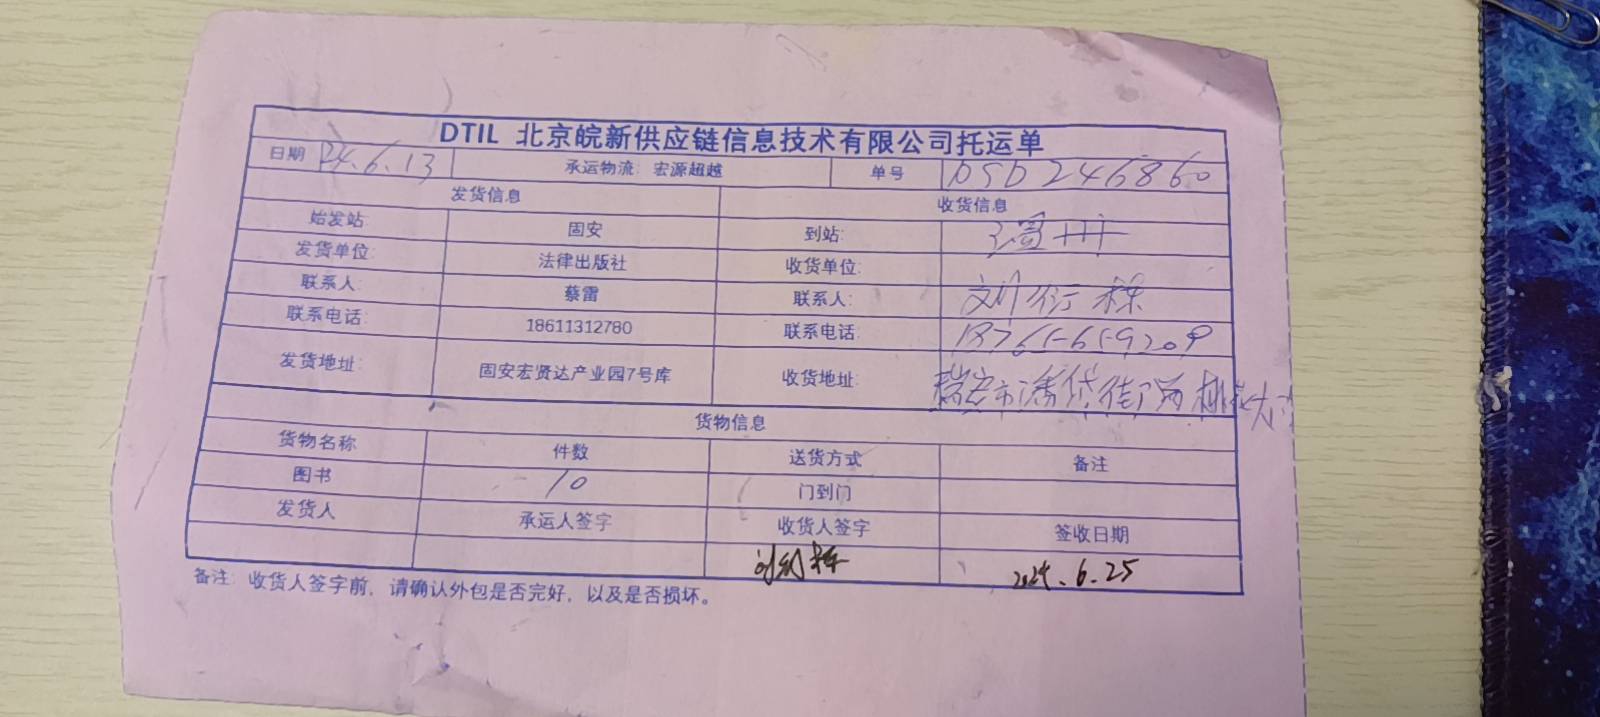 DTIL 北京皖新供应链信息技术有限公司托运单
日期 24.6.13 承运物流：宏源超越 单号 DSD246860
发货信息 收货信息
始发站： 固安 到站： 温州
发货单位： 法律出版社 收货单位：
联系人： 蔡雷 联系人： 刘衍栋
联系电话： 18611312780 联系电话：
发货地址： 固安宏贤达产业园7号库 收货地址： 瑞安市潘岱街
货物信息
货物名称 件数 送货方式 备注
图书 10 门到门
发货人 承运人签字 收货人签字 签收日期
2024.6.25
备注：收货人签字前，请确认外包是否完好，以及是否损坏。